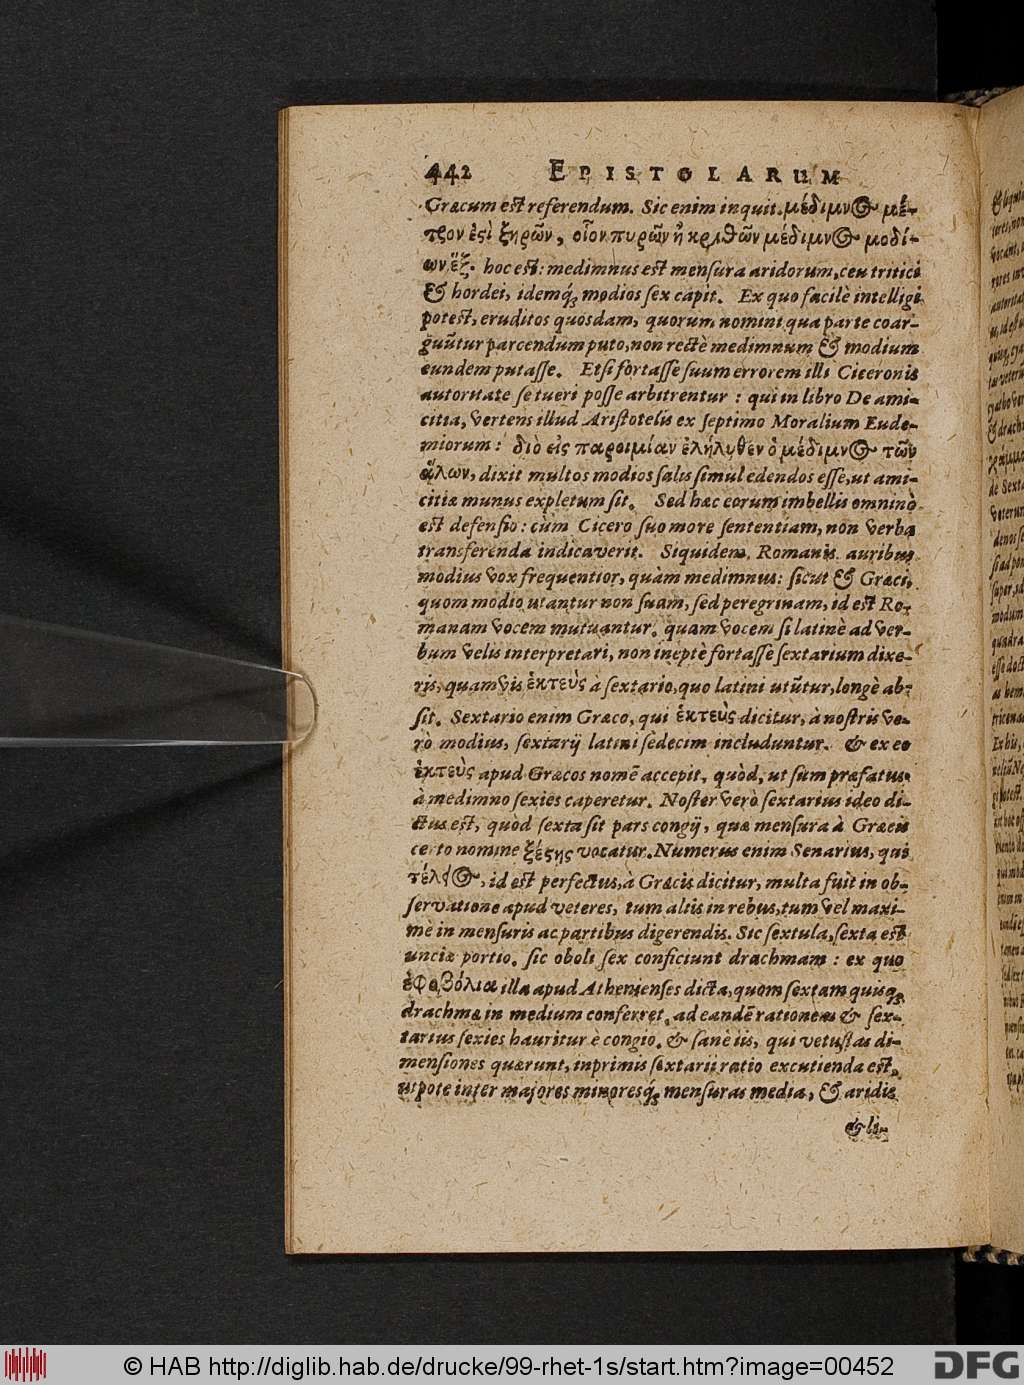 442 EPISTOLARUM
Græcum est referendum. Sic enim inquit. μέδιμνος μέ-
τρον ἐστὶ ξηρῶν, οἷον πυρῶν ἢ κριθῶν μέδιμνος μοδί-
ων ἕξ. hoc est: medimnus est mensura aridorum, ceu tritici
& hordei, idemq́; modios sex capit. Ex quo facilè intelligi
potest, eruditos quosdam, quorum nomini qua parte coar-
guũtur parcendum puto, non rectè medimnum & modium
eundem putasse. Etsi fortasse suum errorem illi Ciceronis
autoritate se tueri posse arbitrentur: qui in libro De ami-
citia, vertens illud Aristotelis ex septimo Moralium Eude-
miorum: διὸ εἰς παροιμίαν ἐλήλυθεν ὁ μέδιμνος τῶν
ἅλων, dixit multos modios salis simul edendos esse, ut ami-
citiæ munus expletum sit. Sed hæc eorum imbellis omninò
est defensio: cùm Cicero suo more sententiam, non verba
transferenda indicaverit. Siquidem Romanis auribus
modius vox frequentior, quàm medimnus: sicut & Græci,
quom modio utantur non suam, sed peregrinam, id est Ro-
manam vocem mutuantur. quam vocem si latinè ad ver-
bum velis interpretari, non ineptè fortasse sextarium dixe-
ris, quamvis ἑκτεὺς à sextario, quo latini utũtur, longè ab-
sit. Sextario enim Græco, qui ἑκτεὺς dicitur, à nostris ve-
rò modius, sextarij latini sedecim includuntur. & ex eo
ἑκτεὺς apud Græcos nomẽ accepit, quòd, ut sum præfatus,
à medimno sexies caperetur. Noster verò sextarius ideo di-
ctus est, quòd sexta sit pars congij, quæ mensura à Græcis
certo nomine ξέστης vocatur. Numerus enim Senarius, qui
τέλειος, id est perfectus, à Græcis dicitur, multa fuit in ob-
servatione apud veteres, tum aliis in rebus, tum vel maxi-
mè in mensuris ac partibus digerendis. Sic sextula, sexta est
unciæ portio. sic oboli sex conficiunt drachmam: ex quo
illa apud Athenienses dicta, quom sextam quisq;
drachmæ in medium conferret. ad eandẽ rationem & sex-
tarius sexies hauritur è congio. & sanè iis, qui vetustas di-
mensiones quærunt, inprimis sextarii ratio excutienda est,
utpote inter majores minoresq́; mensuras media, & aridis
& li-
© HAB http://diglib.hab.de/drucke/99-rhet-1s/start.htm?image=00452
DFG